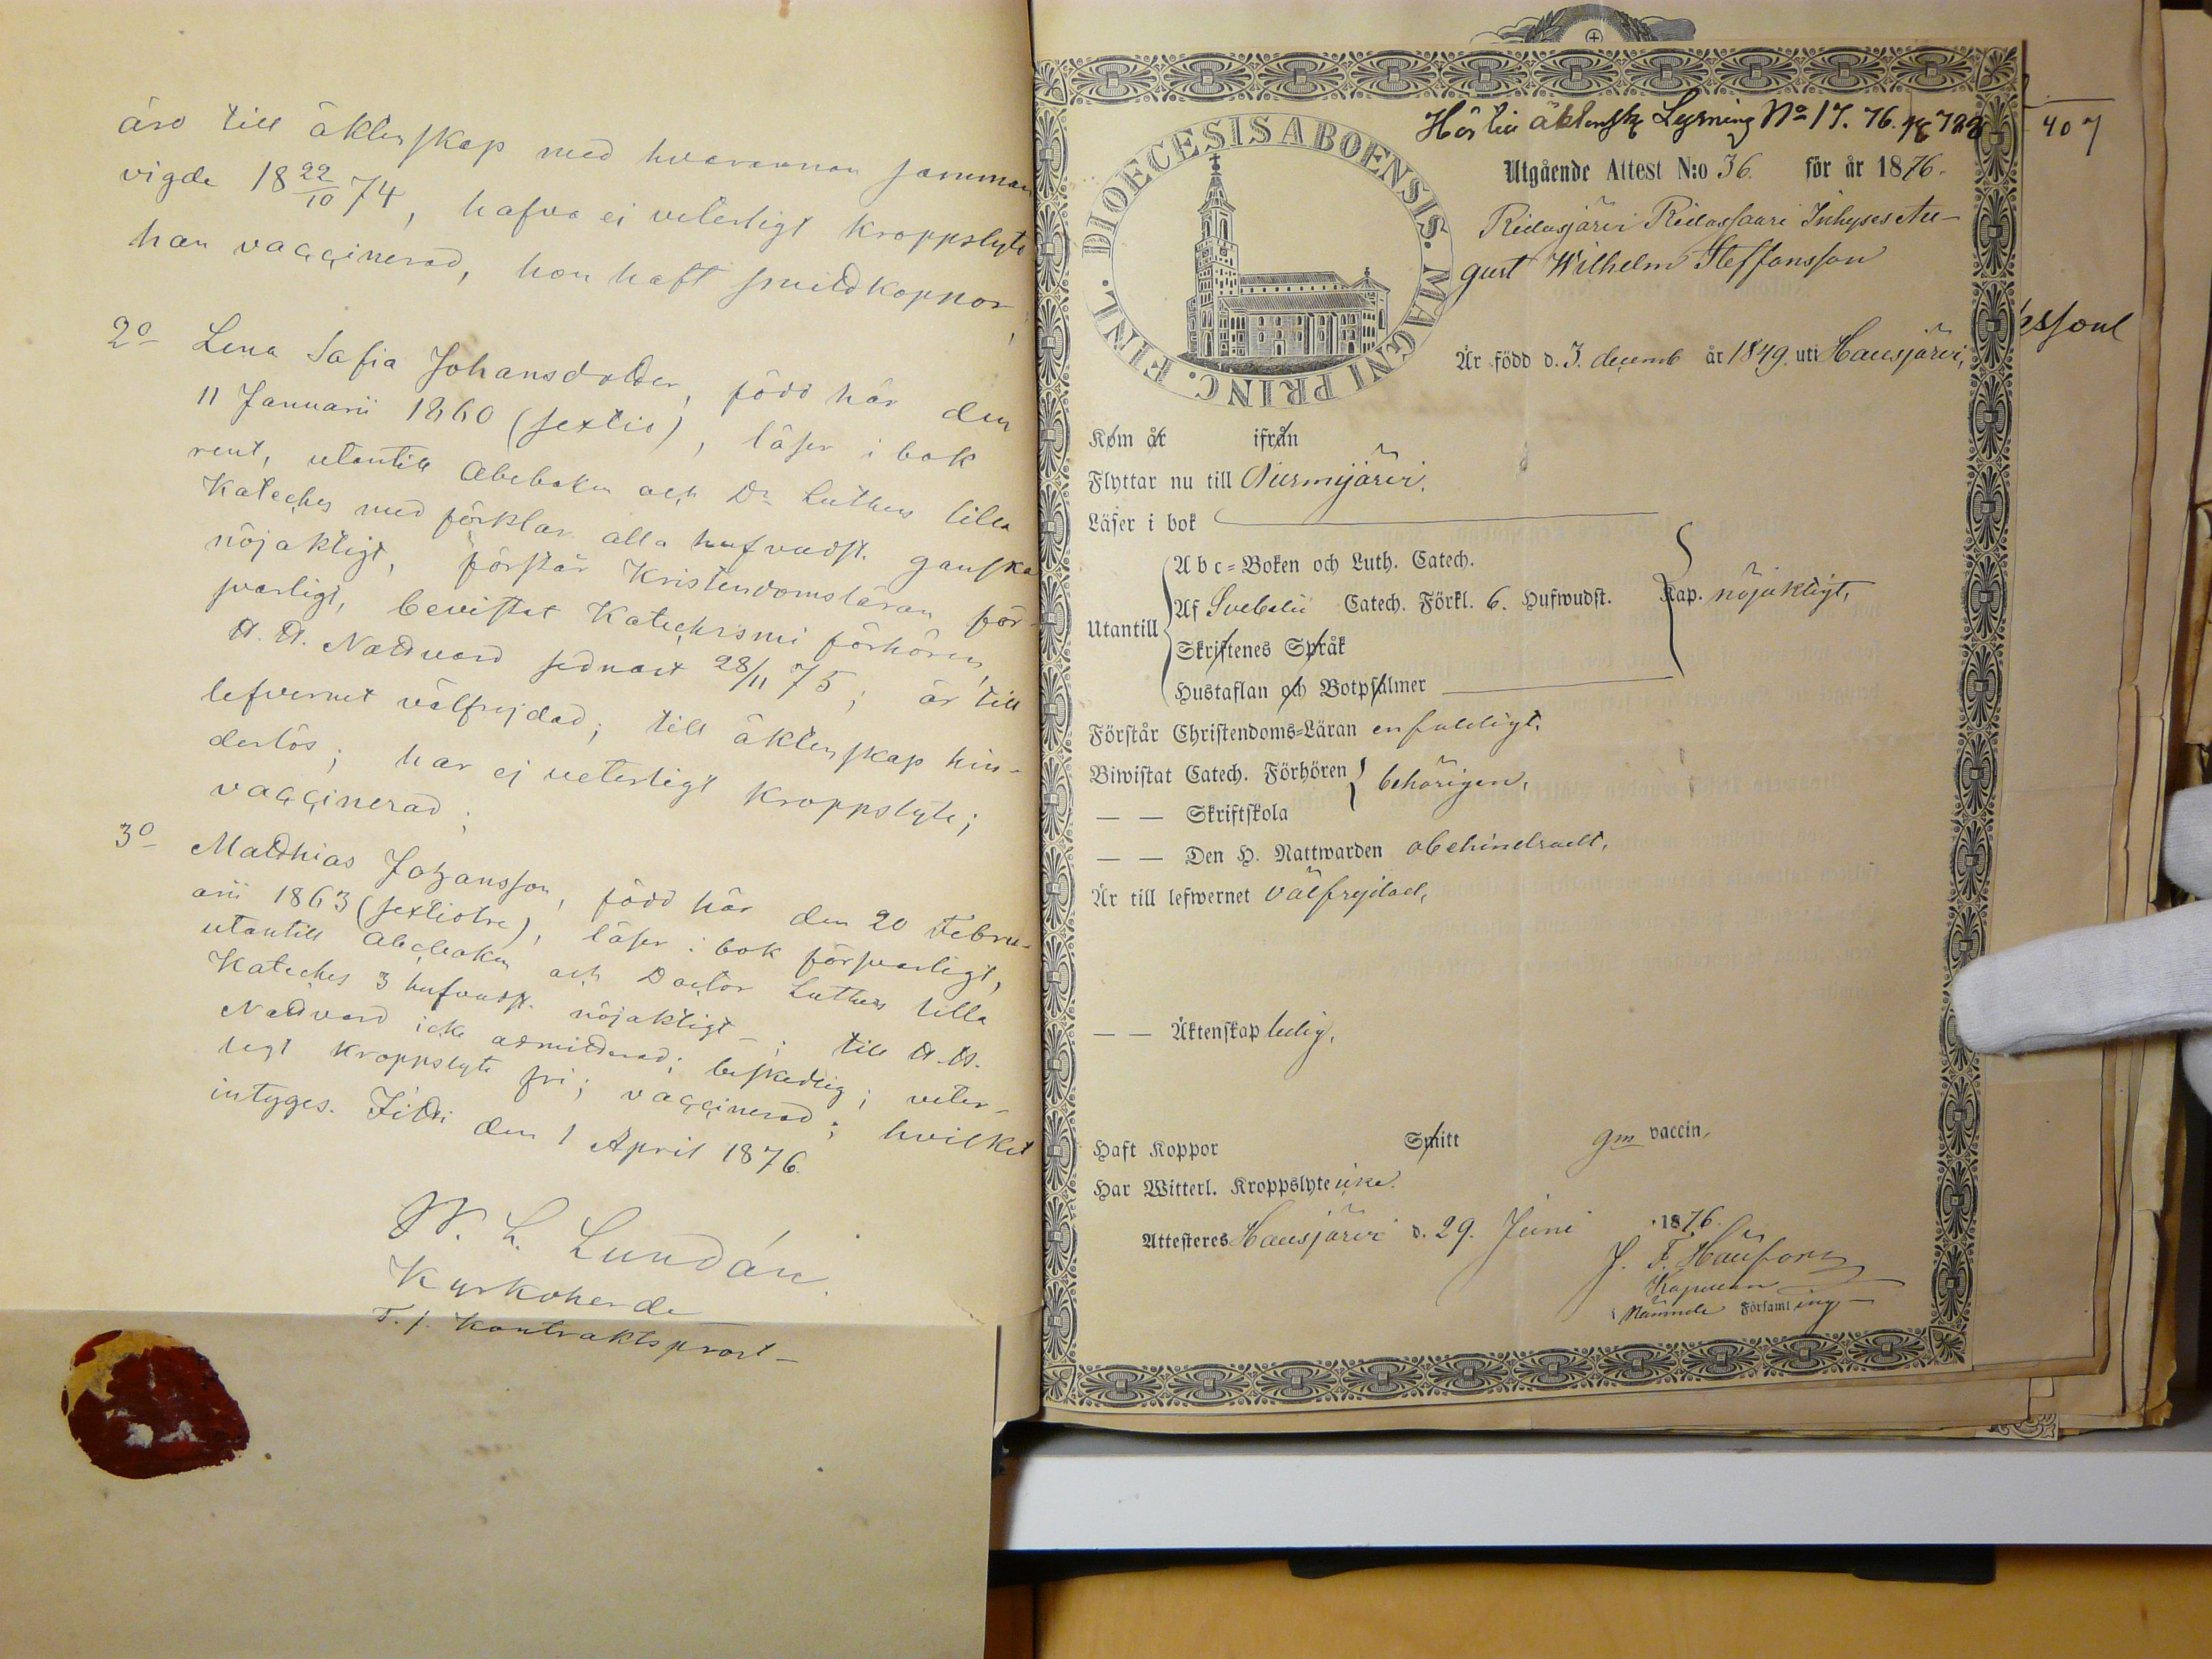 äro till äktenskap med hvarannan samman
vigde 18 22/10 74, hafva ei veterligt kroppslyte
han vaccinerad, hon haft smittkoppor;
2o Lena Sofia Johansdotter, född här den
11 Januarii 1860 (sextio), läser i bok
rent, utantill Abcboken och Dr Luthers lilla
Kateches med förklar. alla hufvudst. ganska
nöjaktigt, förstår Kristendomsläran för-
svarligt, bevistat Katechismi förhören,
H. H. Nattvard sednast 28/11 75; är till
lefvernet välfrejdad; till äktenskap hin-
derlös; har ej veterligt kroppslyte;
vaccinerad;
3o Matthias Johansson, född här den 20 Febru-
arii 1863 (sextiotre), läser i bok försvarligt,
utantill Abcboken och Doctor Luthers lilla
Kateches 3 hufvudst. nöjaktigt; till H. H.
Nattvard icke admitterad; beskedlig; veter-
ligt kroppslyte fri; vaccinerad; hvilket
intyges. Itis den 1 April 1876.
Lundán
Kyrkoherde
T. f. Kontraktsprost
DIOECESIS ABOENSIS. MAGNI PRINC. FINL.
Hör till äktensk Lysning No 17. 76.
Utgående Attest N:o 36. för år 1876.
Ridasjärvi Ridassaari Inhyses Au-
gust Wilhelm Steffansson
Är född d. 3. decemb år 1849. uti Hausjärvi,
Kom år ifrån
Flyttar nu till Nurmijärvi.
Läser i bok
Utantill
Abc-Boken och Luth. Catech.
Af Svebelii Catech. Förkl. 6. Hufwudst. Kap. nöjaktigt,
Skriftenes Språk
Hustaflan och Botpsalmer
Förstår Christendoms-Läran enfaldigt.
Biwistat Catech. Förhören behörigen,
— — Skriftskola
— — Den H. Nattwarden obehindradt,
Är till lefwernet välfrejdad,
— — Äktenskap ledig,
Haft Koppor Smitt gm vaccin,
Har Witterl. Kroppslyte icke.
Attesteres Hausjärvi d. 29. Juni 1876.
J. F.
Kapellan
Nämnde Församling
407